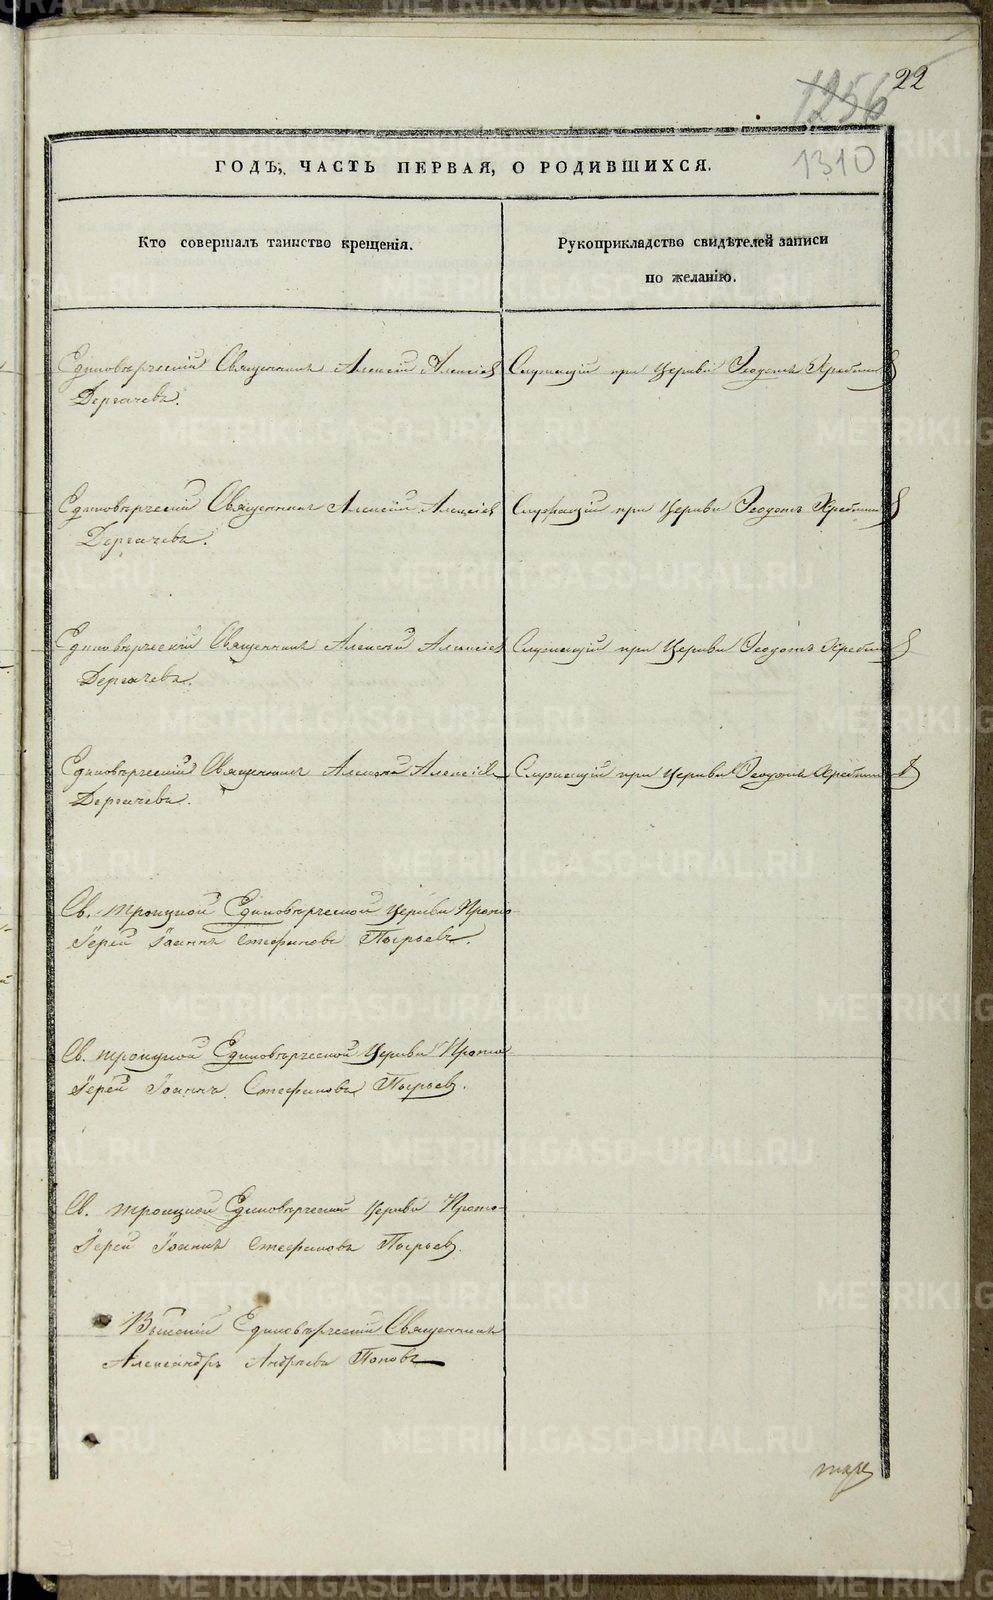 22
1256
1310
ГОДЪ, ЧАСТЬ ПЕРВАЯ, О РОДИВШИХСЯ.
Кто совершалъ таинство крещенія.
Рукоприкладство свидѣтелей записи
по желанію.
Единовѣрческій Священникъ Алексій Алексіевъ
Дергачевъ.
Служащій при Церкви Ѳеодотъ
Единовѣрческій Священникъ Алексій Алексіевъ
Дергачевъ.
Служащій при Церкви Ѳеодотъ
Единовѣрческій Священникъ Алексій Алексіевъ
Дергачевъ.
Служащій при Церкви Ѳеодотъ
Единовѣрческій Священникъ Алексій Алексіевъ
Дергачевъ.
Служащій при Церкви Ѳеодотъ
Св. Троицкой Единовѣрческой Церкви Прото-
Іерей Іоаннъ Стефановъ Пырьевъ.
Св. Троицкой Единовѣрческой Церкви Прото
Іерей Іоаннъ Стефановъ Пырьевъ.
Св. Троицкой Единовѣрческой Церкви Прото-
Іерей Іоаннъ Стефановъ Пырьевъ.
Единовѣрческій Священникъ
Александръ Андреевъ Поповъ
METRIKI.GASO-URAL.RU